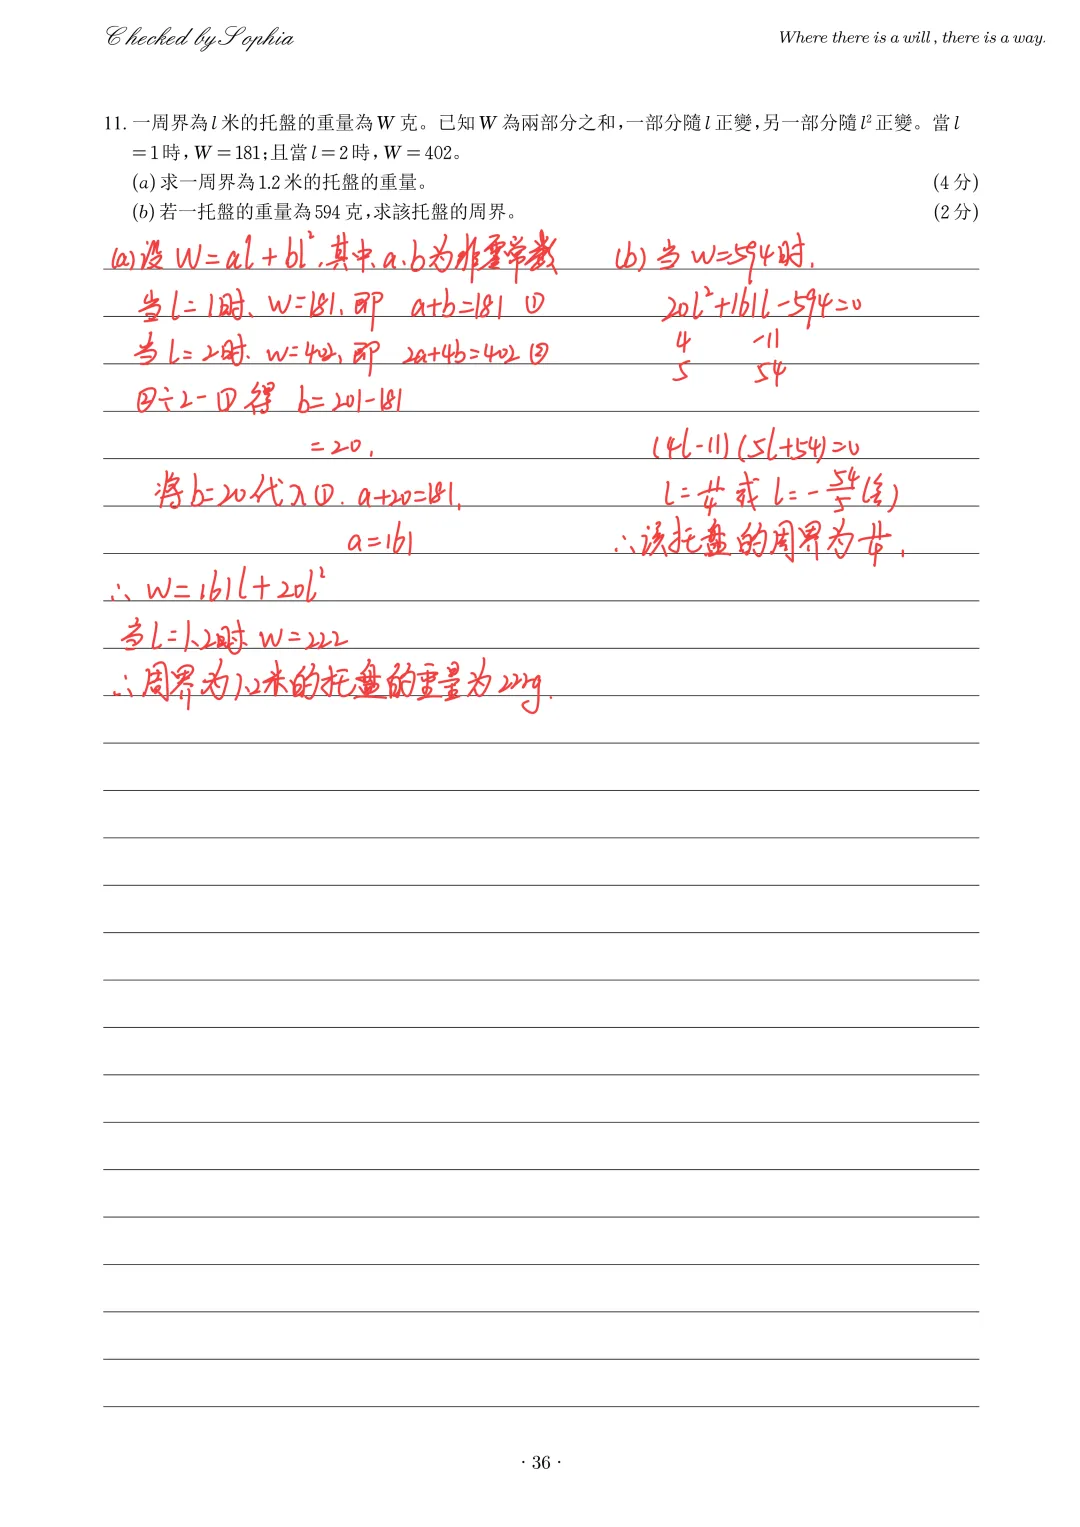 Checked by Sophia
Where there is a will , there is a way.
11. 一周界為 l 米的托盤的重量為 W 克。已知 W 為兩部分之和,一部分隨 l 正變,另一部分隨 l² 正變。當 l
= 1 時, W = 181;且當 l = 2 時, W = 402。
(a) 求一周界為 1.2 米的托盤的重量。 (4 分)
(b) 若一托盤的重量為 594 克,求該托盤的周界。 (2 分)
(a) 设 W=al+bl², 其中, a、b为非零常数
当l=1时、W=181、即 a+b=181 ①
当l=2时、W=402、即 2a+4b=402 ②
②÷2-①得 b=201-181
=20,
将b=20代入①. a+20=181,
a=161
∴ W=161l+20l²
当l=1.2时、W=222
∴周界为1.2米的托盘的重量为222g.
(b) 当W=594时,
20l²+161l-594=0
4 -11
5 54
(4l-11)(5l+54)=0
l=11/4 或 l=-54/5(舍)
∴该托盘的周界为11/4.
· 36 ·